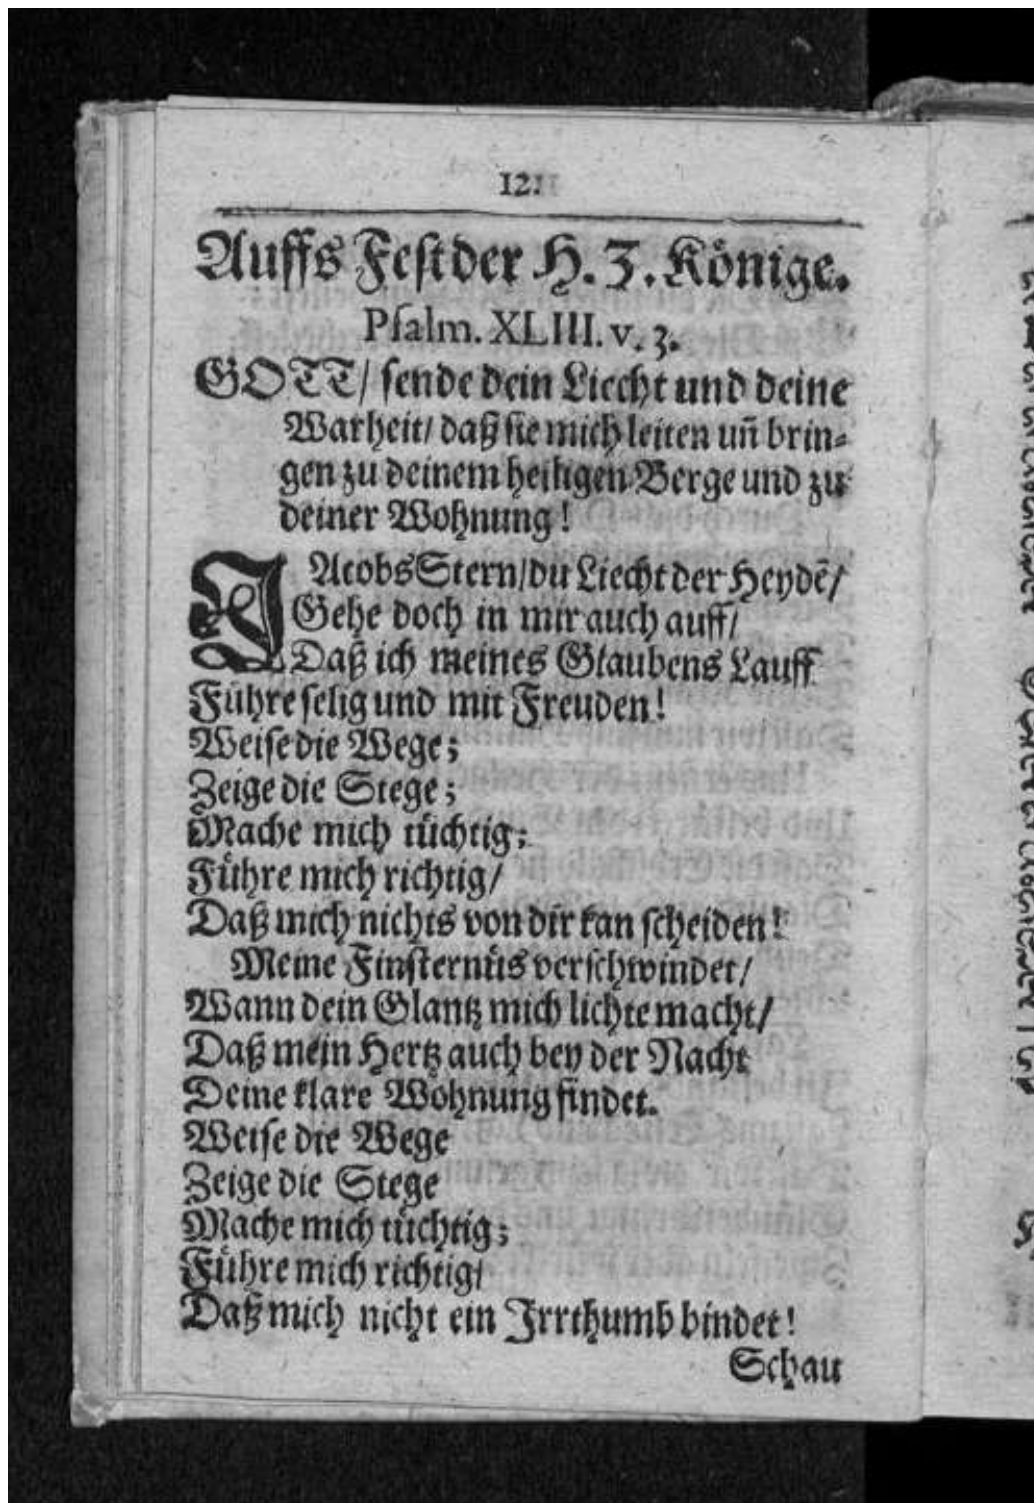 12.
Auffs Fest der H. 3. Könige.
Psalm. XLIII. v. 3.
GOTT/ sende dein Liecht und deine
Warheit/ daß sie mich leiten uñ brin-
gen zu deinem heiligen Berge und zu
deiner Wohnung!
JAcobs Stern/du Liecht der Heydẽ/
Gehe doch in mir auch auff/
Daß ich meines Glaubens Lauff
Führe selig und mit Freuden!
Weise die Wege;
Zeige die Stege;
Mache mich tüchtig;
Führe mich richtig/
Daß mich nichts von dir kan scheiden!
Meine Finsternüs verschwindet/
Wann dein Glantz mich lichte macht/
Daß mein Hertz auch bey der Nacht
Deine klare Wohnung findet.
Weise die Wege
Zeige die Stege
Mache mich tüchtig;
Führe mich richtig/
Daß mich nicht ein Irrthumb bindet!
Schau